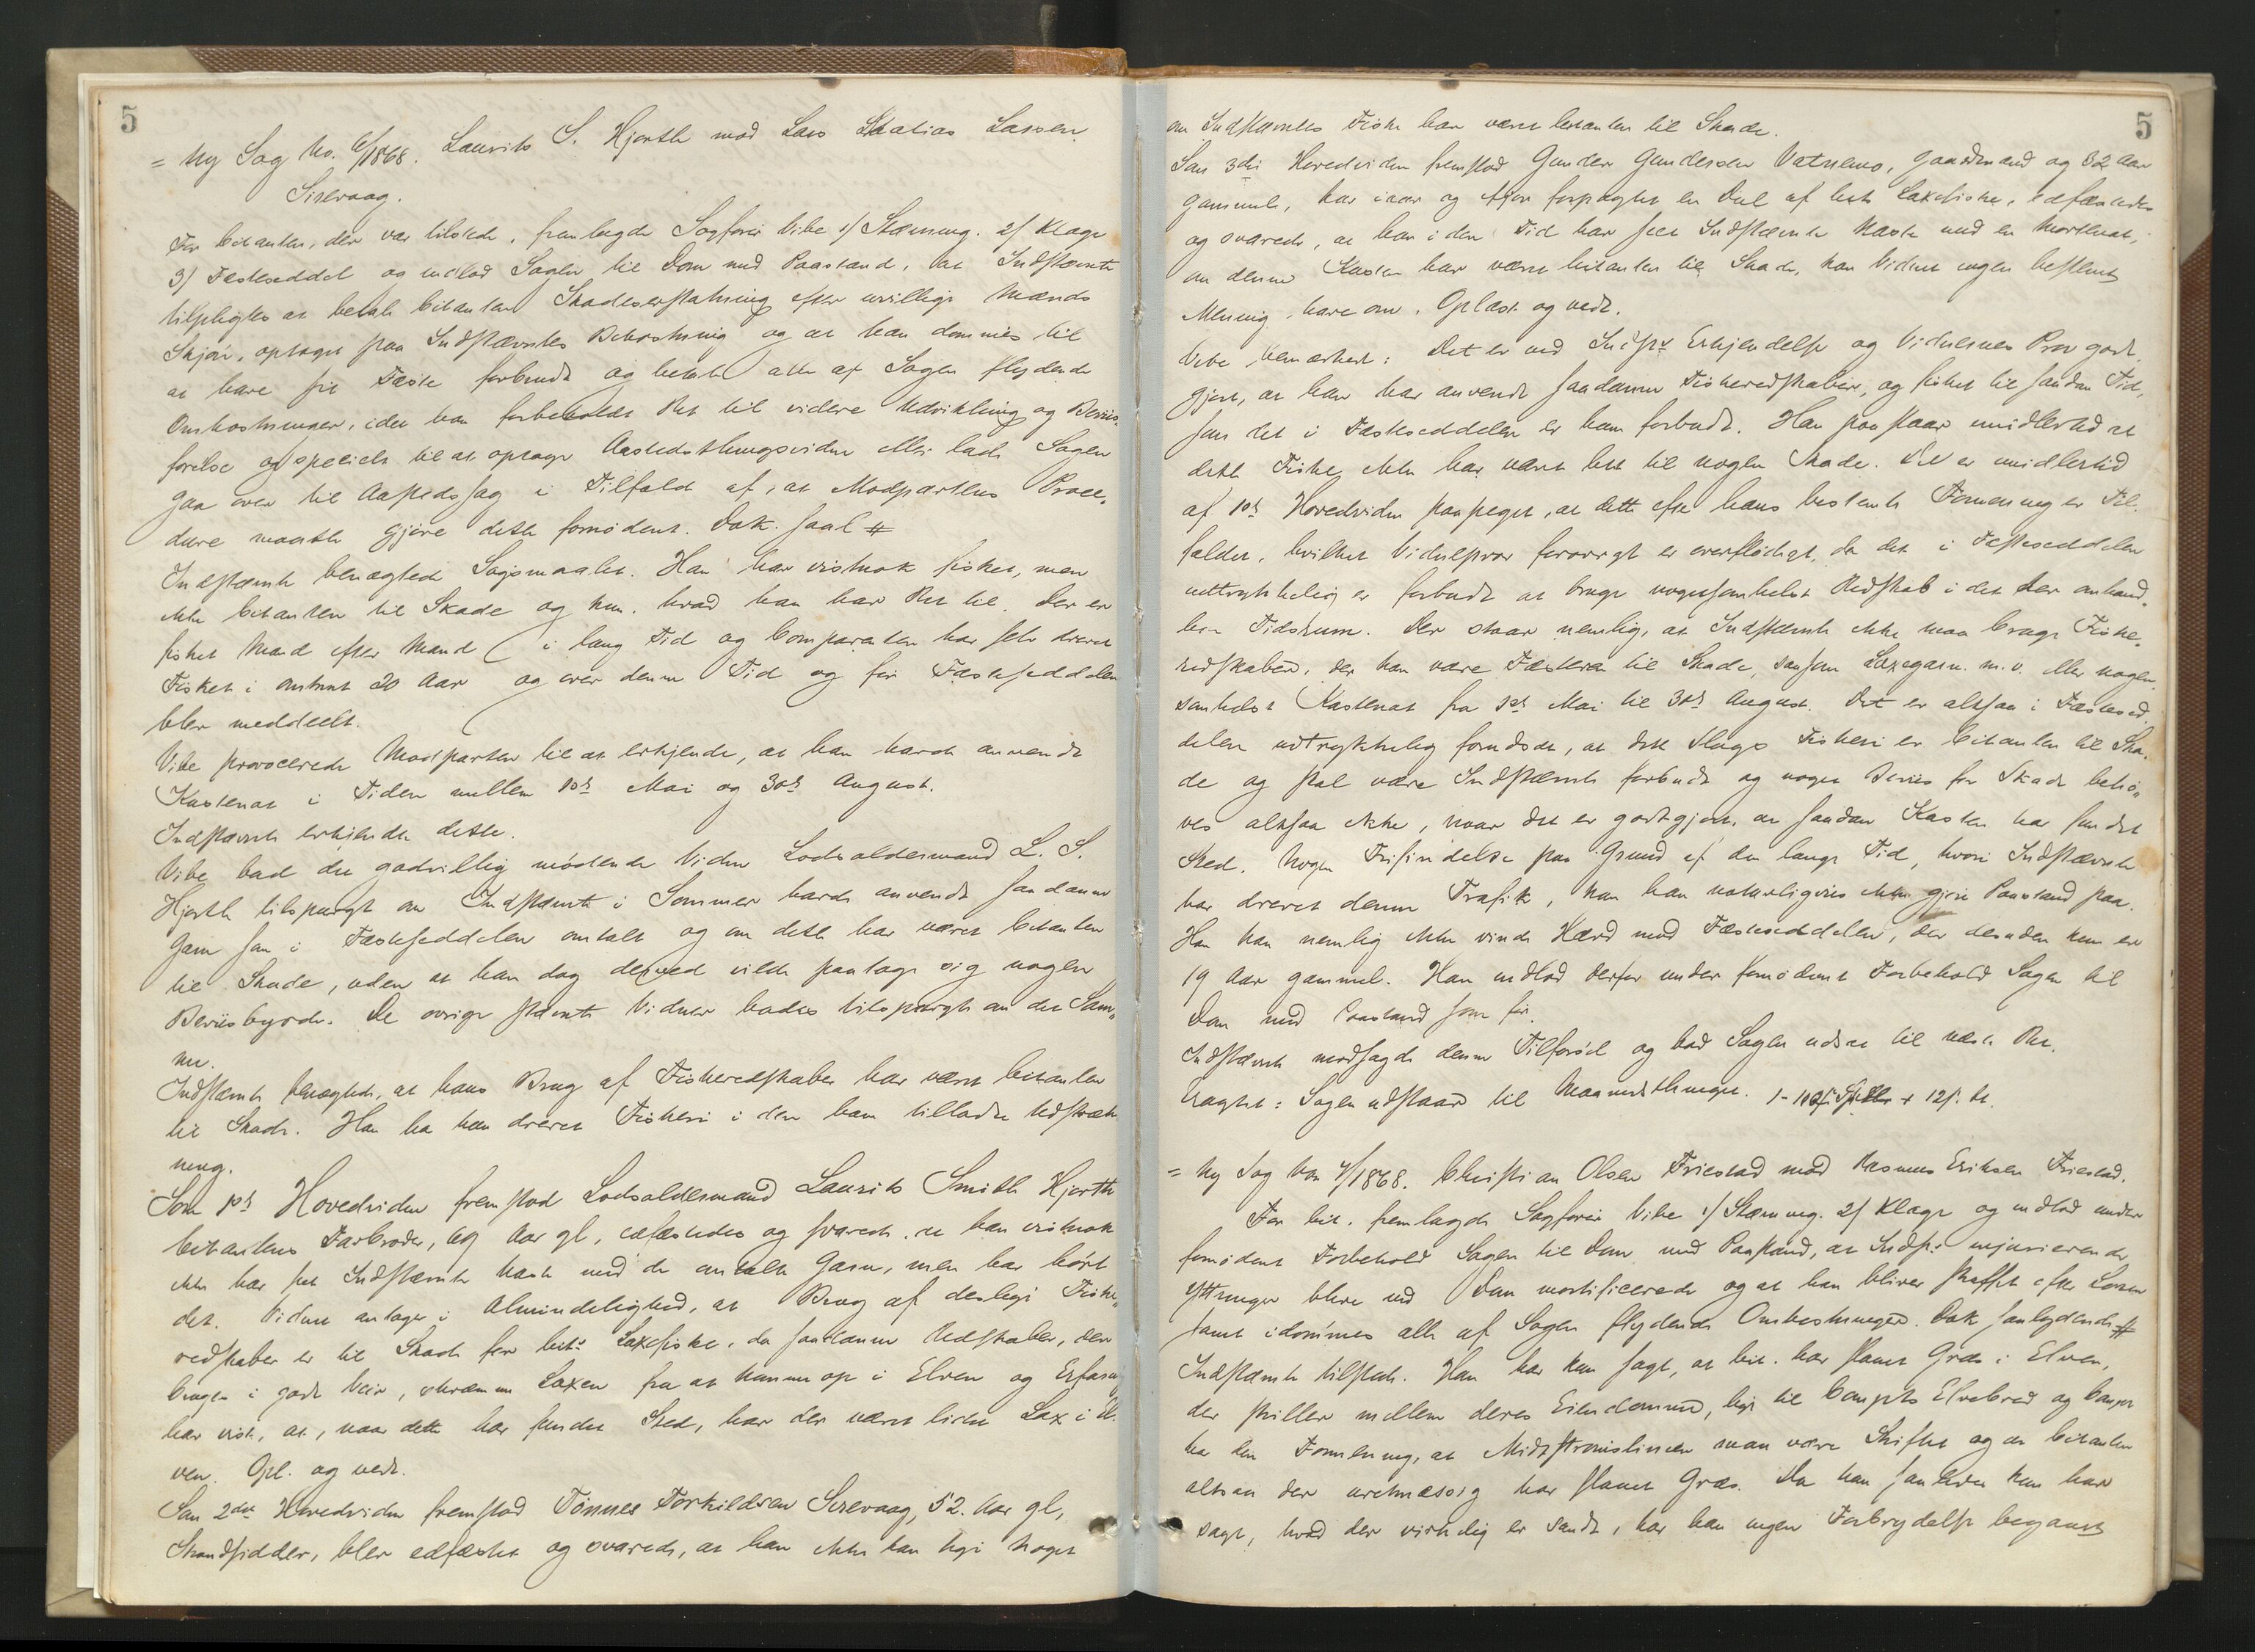 5
= Ny Sag No. 6/1868. Laurits S. Hjorth mod Lars Lassen
Sirevaag.
For Citanten, der var tilstede, fremlagde Sagfører Vibe 1/ Stævning. 2/ Klage
3) Fæsteseddel og indlod Sagen til Dom med Paastand, at Indstævnte
tilpligtes at betale Citanten Skadeserstatning efter uvillige Mænds
Skjøn, optaget paa Indstævntes Bekostning og at han dømmes til
at have sit Fæste forbrudt og betale alle af Sagen flydende
Omkostninger, idet han forbeholdt Ret til videre Udvikling og Beviis„
førelse og specielt til at optage Aastedsthingsvidne eller lade Sagen
gaa over til Aastedssag i Tilfælde af, at Modpartens Proce„
dure maatte gjøre dette fornødent. Dok. saal #
Indstævnte benægtede Søgsmaalet. Han har vistnok fisket, men
ikke Citanten til Skade og kun, hvad han har Ret til. Der er
fisket Mand efter Mand i lang Tid og Comparenten har selv drevet
Fisket i omtrent 20 Aar og over denne Tid og før Fæsteseddelen
blev meddeelt.
Vibe provocerede Modparten til at erkjende, at han havde anvendt
Kastenot i Tiden mellem 1ste Mai og 30te August.
Indstævnte erkjendte dette.
Vibe bad det godvillig mødende Vidne Lodsoldermand L. S.
Hjorth tilspurgt om Indstævnte i Sommer havde anvendt saadanne
Garn som i Fæsteseddelen omtalt og om dette har været Citanten
til Skade, uden at han dog derved vilde paatage sig nogen
Beviisbyrde. De øvrige stævnte Vidner bades tilspurgte om det Sam„
me.
Indstævnte benægtede, at hans Brug af Fiskeredskaber har været Citanten
til Skade. Han har kun drevet Fiskeri i den ham tilladte Udstræk„
ning.
Som 1ste Hovedvidne fremstod Lodsoldermand Laurits Smith Hjorth
Citantens Farbroder, 69 Aar gl, edfæstedes og svarede, at han vistnok
ikke har seet Indstævnte kaste med de omtalte Garn, men har hørt
det. Vidnet antager i Almindelighed, at Brug af deslige Fiske„
redskaber er til Skade for Cits Laxefiske, da saadanne Redskaber, der
bruges i godt Veir, skræmme Laxen fra at komme op i Elven og Erfaring
har vist, at, naar dette har fundet Sted, har der været lidet Lax i El„
ven. Opl. og vedt.
Som 2det Hovedvidne fremstod Tønnes Torkildsen Sirevaag, 52. Aar gl,
Strandsidder, blev edfæstet og svarede, at han ikke kan sige Noget
5
om Indstævntes Fiske har været Citanten til Skade.
Som 3die Hovedvidne fremstod Gunder Gundersen Vatnemo, Gaardmand og 32 Aar
gammel, har iaar og ifjor forpagtet en Deel af Cits Laxefiske, edfæstedes
og svarede, at han i den Tid har seet Indstævnte kaste med en Mortenot,
om denne Kasten har været Citanten til Skade, kan Vidnet ingen bestemt
Mening have om. Oplæst og vedt.
Vibe bemærkede: Det er ved Indsts Erkjendelse og Vidnernes Prov godt„
gjort, at han har anvendt saadanne Fiskeredskaber, og fisket til saadan Tid,
som det i Fæsteseddelen er ham forbudt. Han paastaar imidlertid at
dette Fiske ikke har været Cit til nogen Skade. Det er imidlertid
af 1ste Hovedvidne paapeget, at dette efter hans bestemte Formening er Til„
fældet, hvilket Vidneprov forøvrigt er overflødigt, da det i Fæsteseddelen
udtrykkelig er forbudt at bruge nogetsomhelst Redskab i det her omhand„
lede Tidsrum. Der staar nemlig, at Indstævnte ikke maa bruge Fiske„
redskaber, der kan være Fæsteren til Skade, saasom Laxegarn m. v. eller nogen„
somhelst Kastenot fra 1ste Mai til 30te August. Det er altsaa i Fæstesed„
delen udtrykkelig forudsat, at det Slags Fiskeri er Citanten til Ska„
de og skal være Indstævnte forbudt og noget Beviis for Skade behø„
ves altsaa ikke, naar det er godtgjort, at saadan Kasten har fundet
Sted. Nogen Frifindelse paa Grund af den lange Tid, hvori Indstævnte
har drevet denne Trafik, kan han naturligviis ikke gjøre Paastand paa.
Han kan nemlig ikke vinde Hævd mod Fæsteseddelen, der desuden kun er
19 Aar gammel. Han indlod derfor under fornødent Forbehold Sagen til
Dom med Paastand som før.
Indstævnte modsagde denne Tilførsel og bad Sagen udsat til næste Ret.
Eragtet: Sagen udstaar til Maanedsthinget.
= Ny Sag No 7/1868. Christian Olsen Friestad mod Rasmus Eriksen Friestad.
For Cit. fremlagde Sagfører Vibe 1/ Stævning. 2/ Klage og indlod under
fornødent Forbehold Sagen til Dom med Paastand, at Indsts injurierende
Yttringer blive ved Dom mortificerede og at han bliver straffet efter Loven
samt idømmes alle af Sagen flydende Omkostninger. Dok saalydende #
Indstævnte tilstede. Han har kun sagt, at Cit. har slaaet Græs i Elven,
der skiller mellem deres Eiendomme, lige til Compts Elvebred og Compt
har den Formening, at Midtstrømslinien maa være Skiftet og at Citanten
altsaa der uretmæssig har slaaet Græs. Da han saaledes kun har
sagt, hvad der virkelig er sandt, har han ingen Forbrydelse begaaet